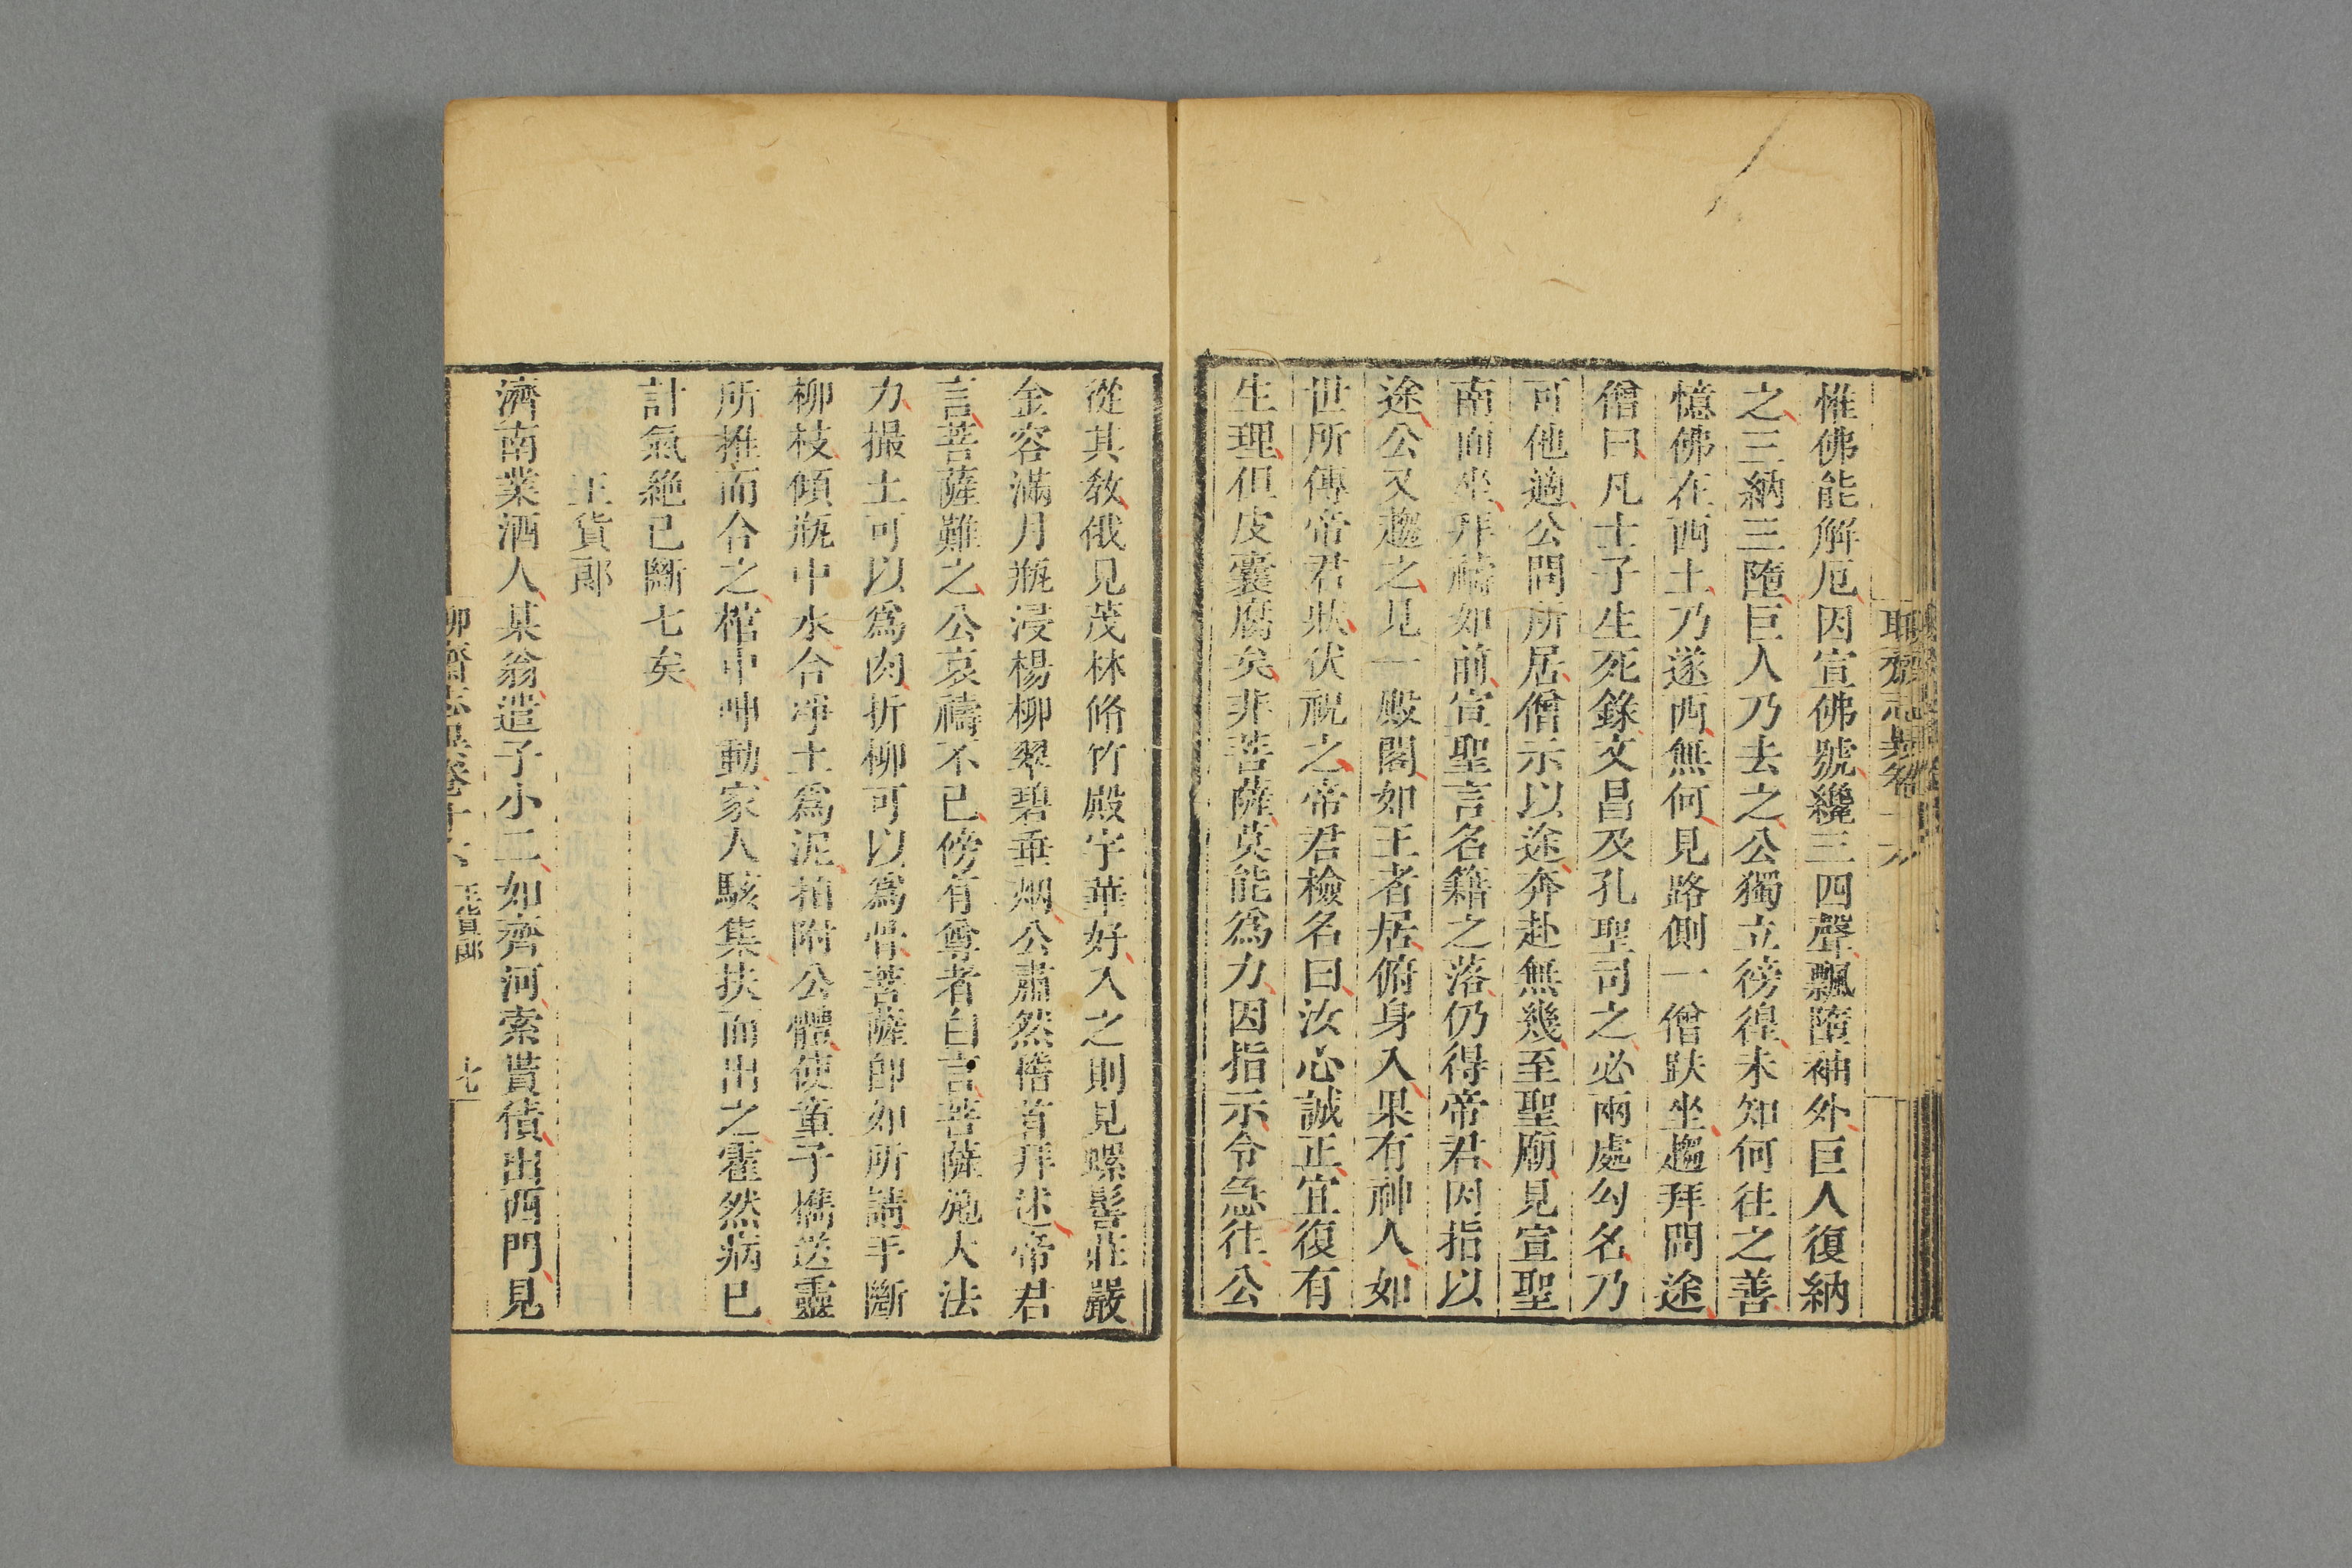 聊齋志異卷十六
惟佛能解厄因宣佛號纔三四聲飄墮袖外巨人復納
之三納三墮巨人乃去之公獨立徬徨未知何往之善
憶佛在西土乃遂西無何見路側一僧趺坐趨拜問途
僧曰凡士子生死錄文昌及孔聖司之必兩處勾名乃
可他適公問所居僧示以途奔赴無幾至聖廟見宣聖
南面坐拜禱如前宣聖言名籍之落仍得帝君因指以
途公又趨之見一殿閣如王者居俯身入果有神人如
世所傳帝君狀伏祝之帝君檢名曰汝心誠正宜復有
生理但皮囊腐矣非菩薩莫能爲力因指示令急往公
從其教俄見茂林脩竹殿宇華好入之則見螺髻莊嚴
金容滿月瓶浸楊柳翠碧垂烟公肅然稽首拜述帝君
言菩薩難之公哀禱不已傍有尊者白言菩薩施大法
力撮土可以爲肉折柳可以爲骨菩薩卽如所請手斷
柳枝傾瓶中水合淨土爲泥拍附公體使童子攜送靈
所推而合之棺中呻動家人駭集扶而出之霍然病已
計氣絕已斷七矣
王貨郎
濟南業酒人某翁遣子小二如齊河索貰債出西門見
聊齋志異卷十六 王貨郎 七